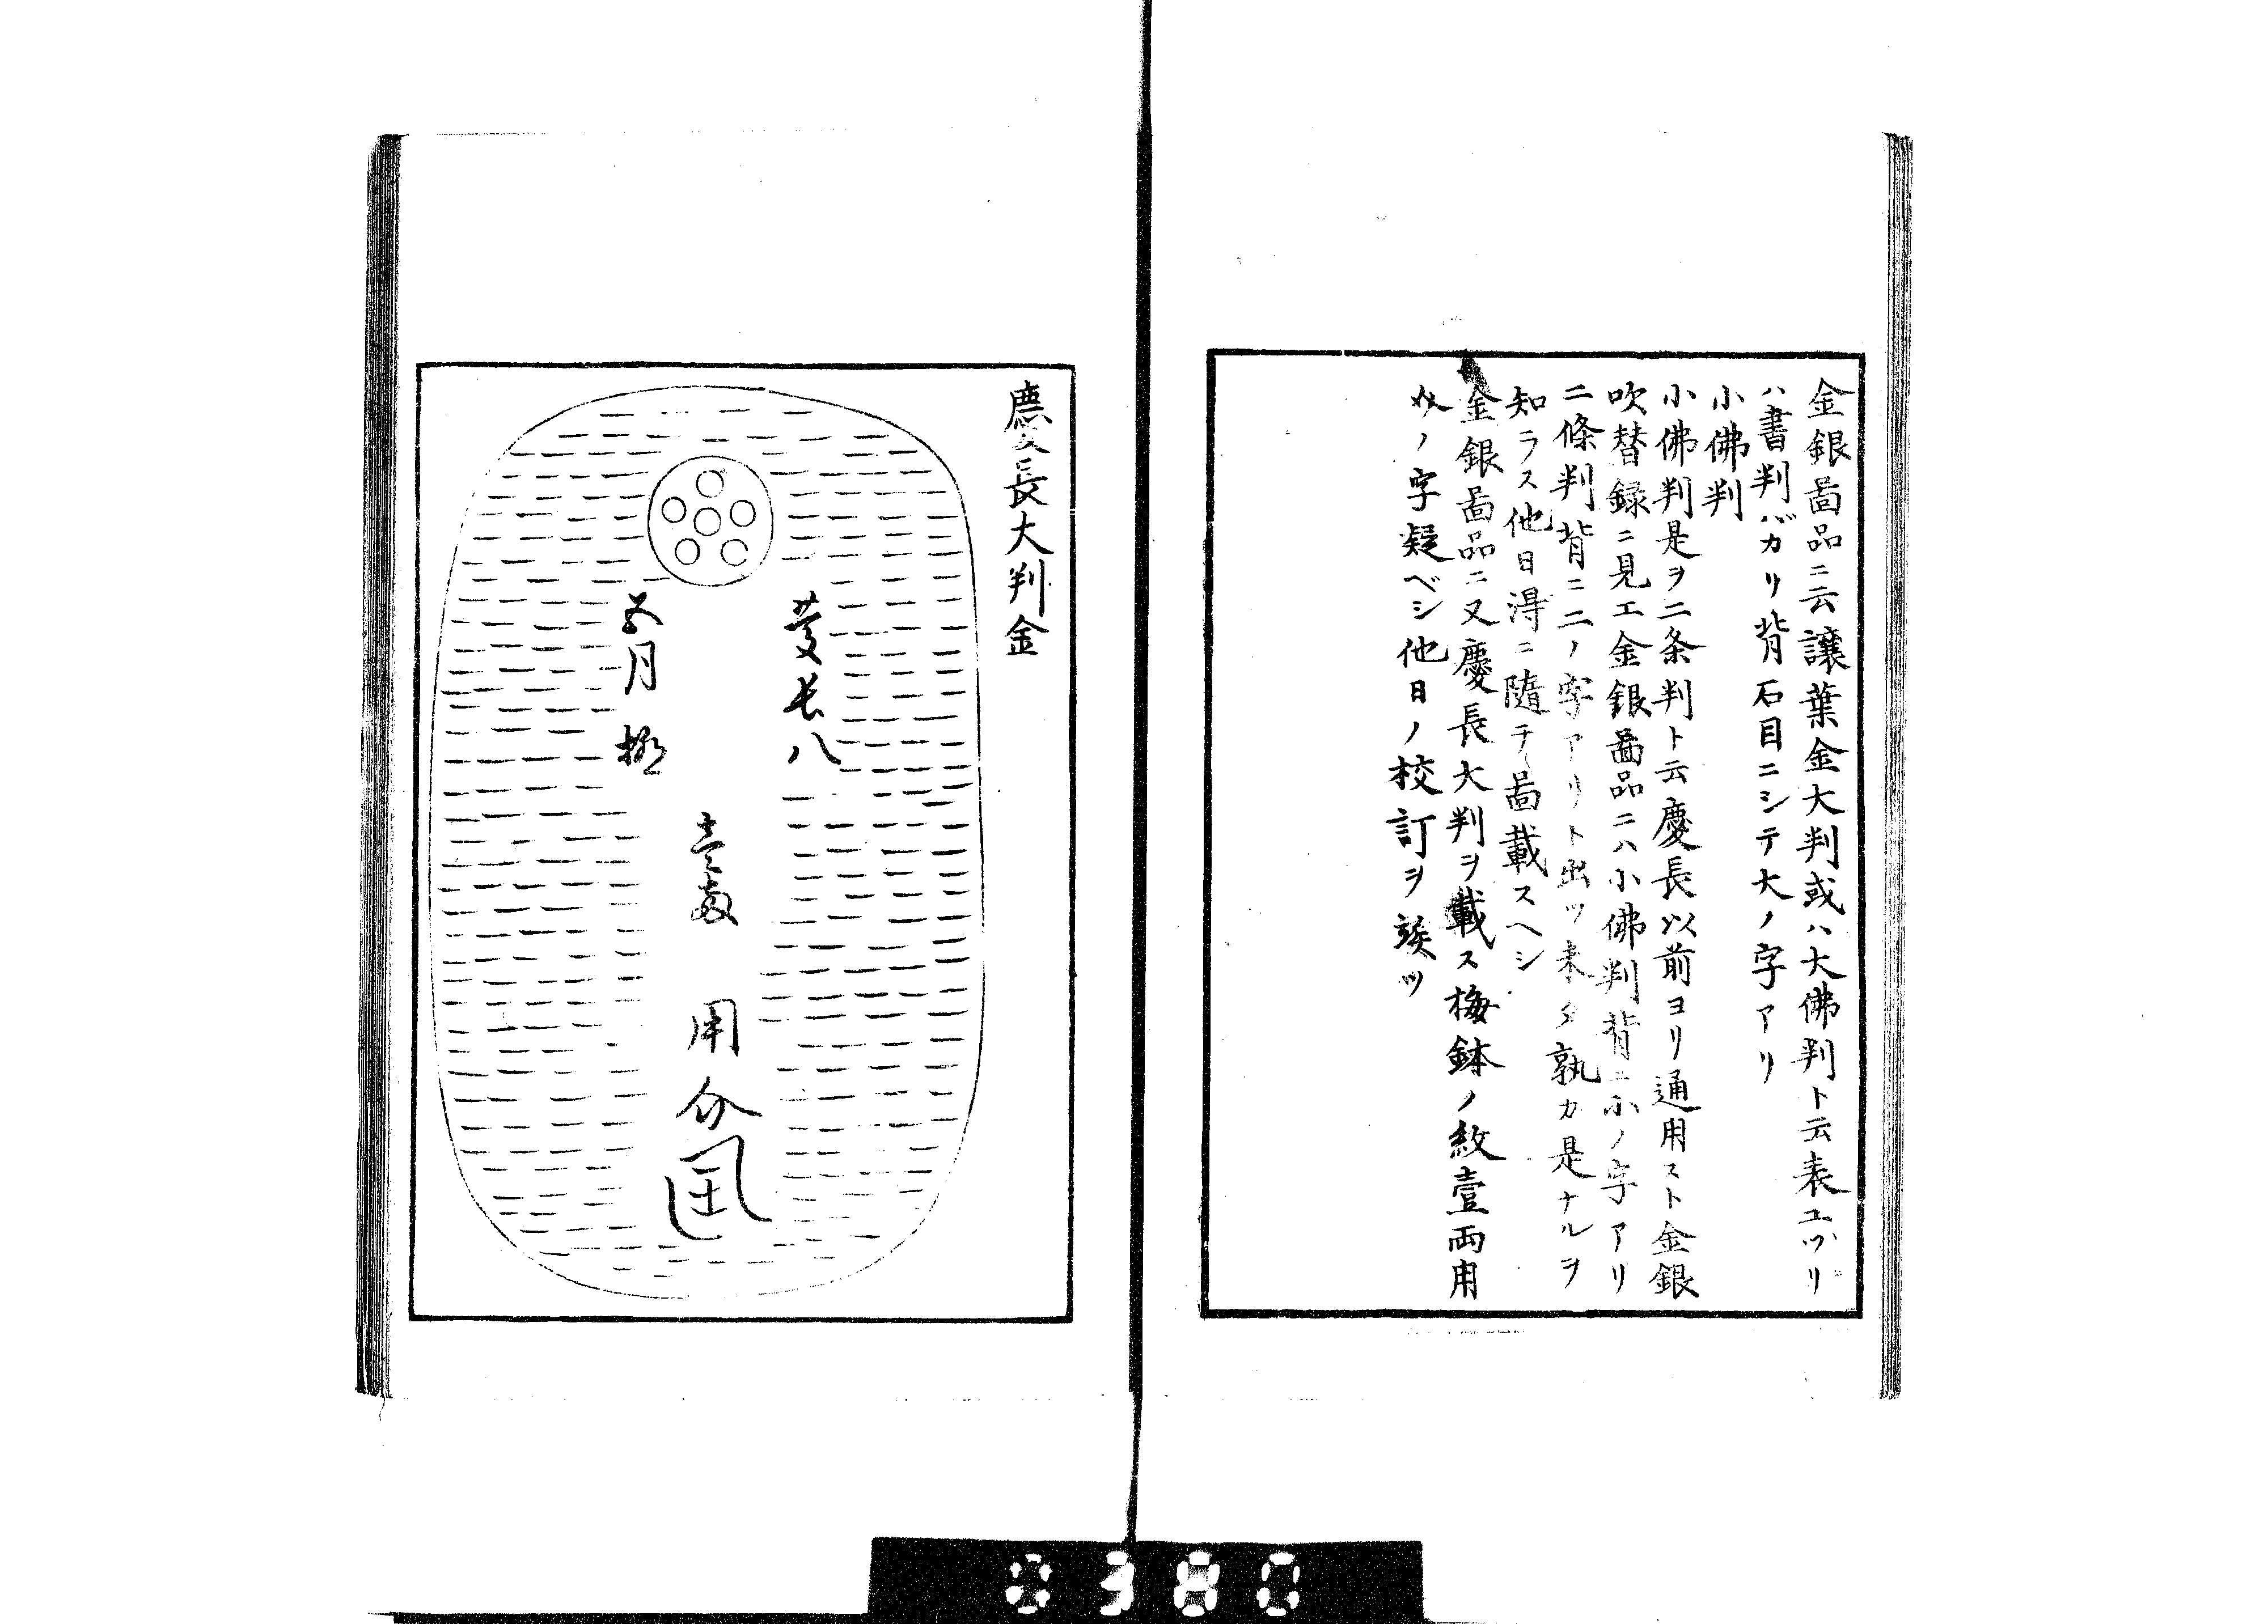 金銀啚品ニ云譲葉金大判或ハ大佛判ト云表ユヅリ
ハ書判バカリ背石目ニシテ大ノ字アリ
小佛判
小佛判是ヲ二条判ト云慶長以前ヨリ通用スト金銀
吹替録ニ見エ金銀啚品ニハ小佛判背ニ小ノ字アリ
二條判背ニ二ノ字アリト出ツ未タ孰カ是ナルヲ
知ラス他日得ニ随テ啚載スヘシ
金銀啚品ニ又慶長大判ヲ載ス梅鉢ノ紋壹両用
ノ字疑ベシ他日ノ校訂ヲ竢ツ
慶長大判金
慶长八
五月
壹両
用介
0380